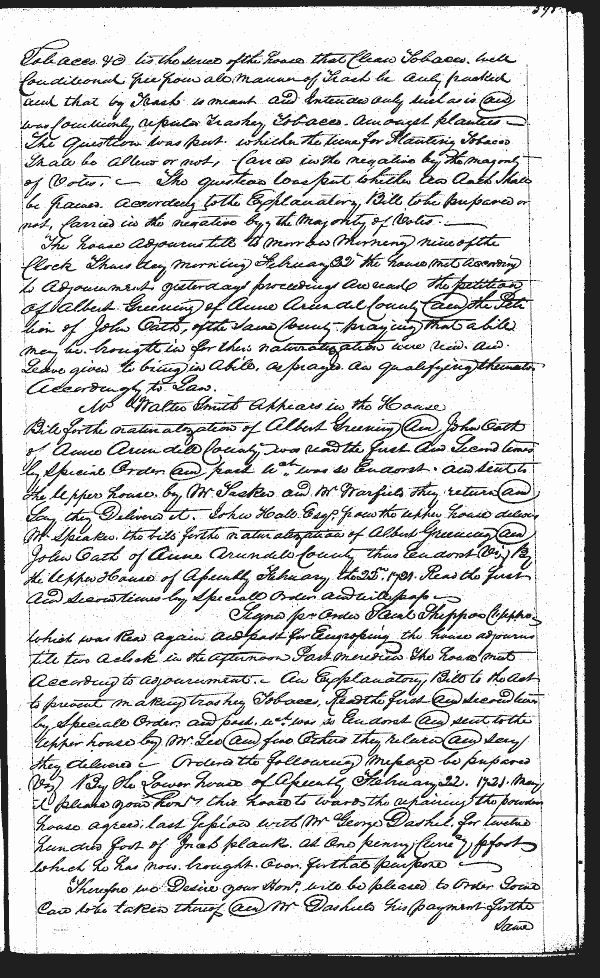 398
Tobacco &c tis the sence of the house that Clean Tobacco well
Conditioned free from all manner of Trash be only packed
and that by Trash is meant and Intended only such as is and
was Commonly reputed Trashey Tobacco amongst planters
The Question was put whether the time for Planting Tobacco
Shall be allowd or not, Carried in the negative by the majority
of Votes. The question was put whether an Oath shall
be framed according to the Explanatory Bill to be prepared or
not, Carried in the negative by the Majority of Votes.
The house adjourns till to morrow Morning nine of the
Clock Thursday morning February 22d the house met according
to adjournment, yesterdays proceedings are read the petition
of Albert Greening of Anne Arundel County and the Peti
tion of John Oath, of the same County praying that a bill
may be brought in for their naturalization were read and
Leave given to bring in a bill, as prayed on qualifying themselves
Accordingly to Law.
Mr Walter Smith appears in the House
Bill for the naturalization of Albert Greening and John Oath
of Anne Arundell County was read the first and Second times
by special Order and past wch was so Endorst and sent to
the Upper house by Mr Tasker and Mr Warfield they return and
Say they Delivered it. John Hall Esqr. from the upper house delivers
Mr Speaker the bill for the naturalization of Albert Greening and
John Oath of Anne Arundell County thus Endorst Viz By
the Upper House of Assembly February the 22d 1721. Read the first
and second times by Speciall Order and will pass
Signed pr Order Saml Skippon Clupho.
which was read again and past for Engrossing the house adjourns
till two aclock in the afternoon Post meridien the house met
According to adjournment. An Explanatory Bill to the Act
to prevent making trashey Tobacco, Read the first and second time
by Speciall Order and past, wch was so Endorst and sent to the
Upper house by Mr Lee and five Others they return and say
they delivered Ordered the following Message be prepared
Viz By the Lower house of Assembly February 22. 1721. May
it please your Honrs this house towards the repairing the powder
house agreed last Session with Mr George Dashiel for twelve
hundred foot of Inch plank at One penny Curr:cy p foot
which he has now brought Over for that purpose
Therefore we Desire your Honrs will be pleased to Order Some
Care to be taken thereof and Mr Dashield his payment for the
Same